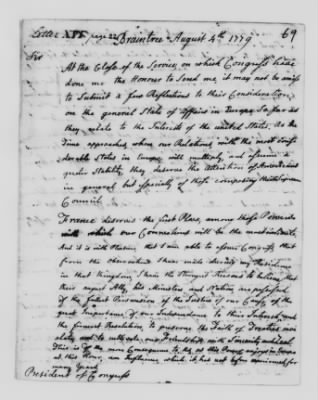 Letter XPF page 22 Braintree August 4th 1779 69
Sir
At the Close of the Service on which Congress have
done me the Honour to send me, it may not be amiss
to submit a few Reflections to their Consideration
on the general State of Affairs in Europe, so far as
they relate to the Interests of the United States. As the
Time approaches when our Relations with the most consi-
derable States in Europe will multiply, and assume a
greater Stability, they deserve the Attention of Americans
in general but especially of those composing their supreme
Council.
France deserves the first Place, among those Powers
with which our Connections will be the most intimate
And it is with Pleasure, that I am able to assure Congress, that
from the Observations I have made during my Residence
in that Kingdom, I have the strongest Reasons to believe, that
their august Ally, his Ministers and Nation, are possessed
of the fullest Perswasion of the Justice of our Cause, of the
great Importance of our Independence to their Interests, and
the firmest Resolution, to preserve the Faith of Treaties invi-
olate, and to cultivate our Friendship with Sincerity and Zeal.
This is of the more Consequence to Us, as this Power enjoys in Europe
at this Hour, an Influence which it has not before experienced for
many Years
President of Congress